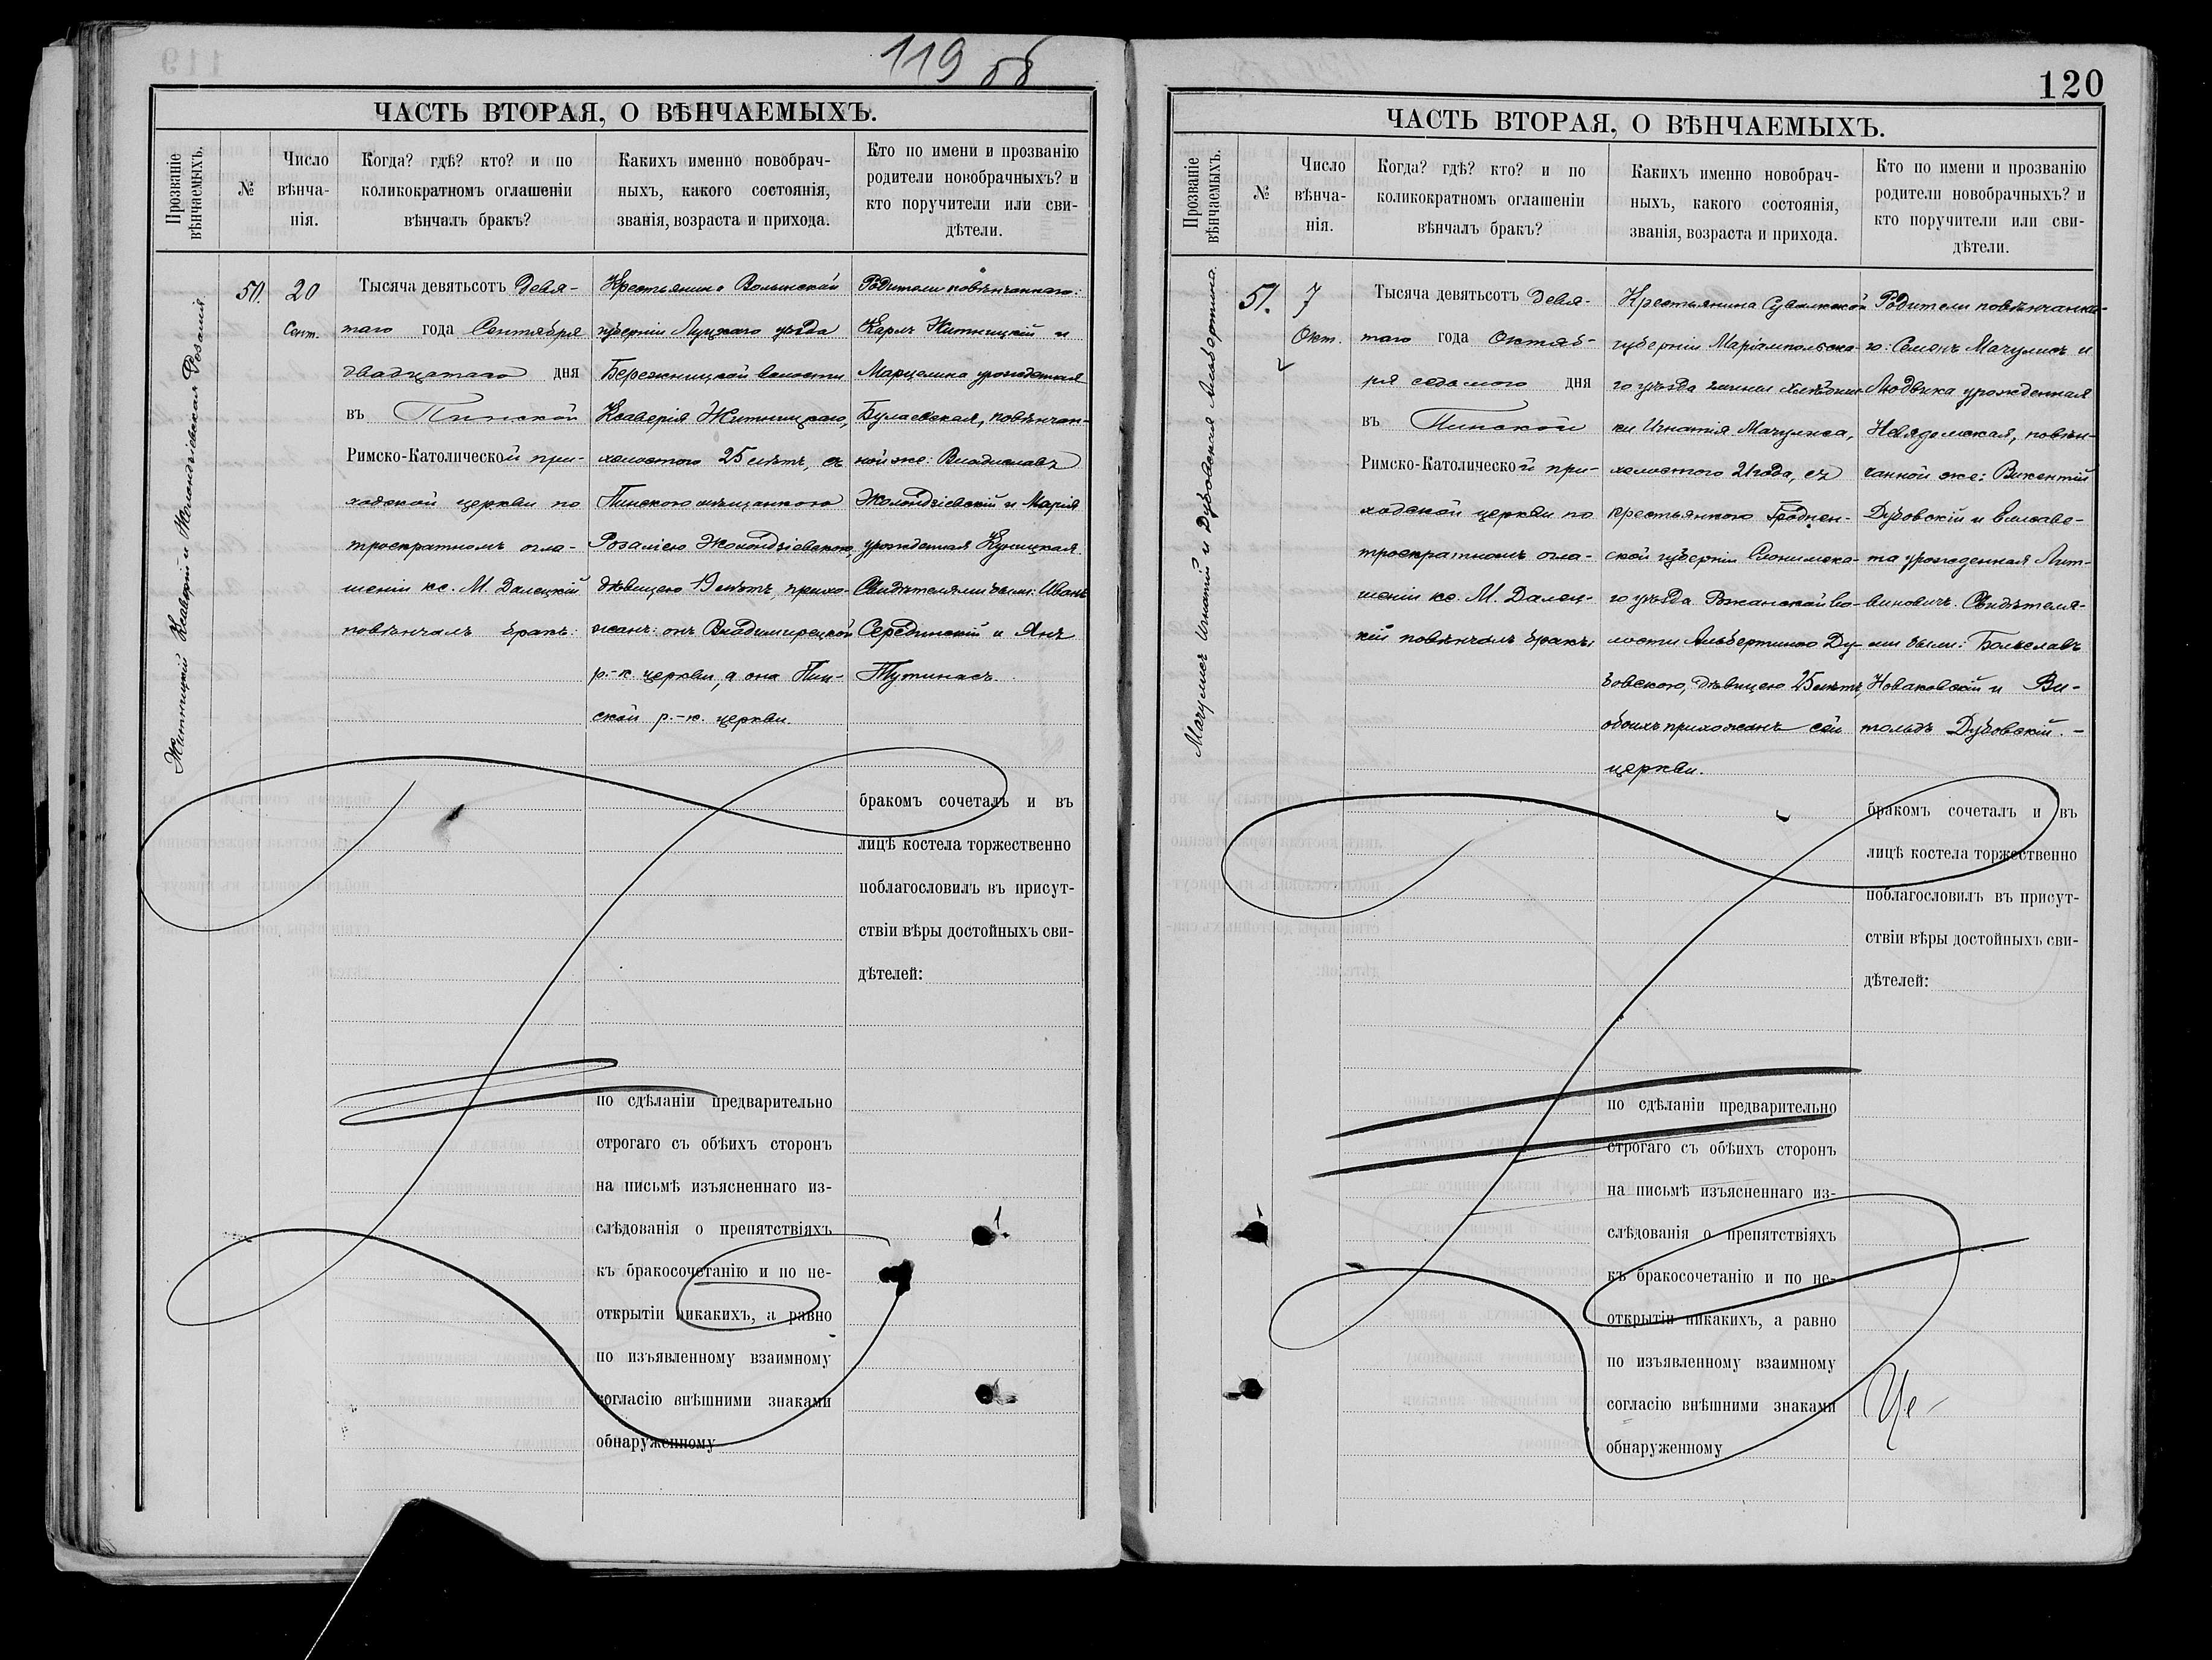 119 об
ЧАСТЬ ВТОРАЯ, О ВѢНЧАЕМЫХЪ.
Прозваніе вѣнчаемыхъ.
№
Число вѣнча-
нія.
Когда? гдѣ? кто? и по
коликократномъ оглашеніи
вѣнчалъ бракъ?
Какихъ именно новобрач-
ныхъ, какого состоянія,
званія, возраста и прихода.
Кто по имени и прозванію
родители новобрачныхъ? и
кто поручители или сви-
дѣтели.
Житницкій Ксаверій и Жолондзіевская Розалія
50.
20
Сент.
Тысяча девятьсотъ Девя-
таго года Сентября
двадцатаго дня
въ Пинской
Римско-Католической при-
ходской церкви по
троекратномъ огла-
шеніи кс. М. Далецкій
повѣнчалъ бракъ:
Крестьянина Волынской
губерніи Луцкаго уѣзда
Бережницкой волости
Ксаверія Житницкаго,
холостого 25 лѣтъ, съ
Пинскою мѣщанкою
Розаліею Жолондзіевскою,
дѣвицею 19 лѣтъ, прихо-
жанъ: онъ Владимирецкой
р.-к. церкви, а она Пин-
ской р.-к. церкви.
Родители повѣнчаннаго:
Карлъ Житницкій и
Марцелина урожденная
Булаевская, повѣнчан-
ной же: Владиславъ
Жолондзіевскій и Марія
урожденная Куницкая.
Свидѣтелями были: Иванъ
Серединскій и Янъ
Тутинасъ.
бракомъ сочеталъ и въ
лицѣ костела торжественно
поблагословилъ въ присут-
ствіи вѣры достойныхъ сви-
дѣтелей:
по сдѣланіи предварительно
строгаго съ обѣихъ сторонъ
на письмѣ изъясненнаго из-
слѣдованія о препятствіяхъ
къ бракосочетанію и по не-
открытіи никакихъ, а равно
по изъявленному взаимному
согласію внѣшними знаками
обнаруженному
120
ЧАСТЬ ВТОРАЯ, О ВѢНЧАЕМЫХЪ.
Прозваніе вѣнчаемыхъ.
№
Число
вѣнча-
нія.
Когда? гдѣ? кто? и по
коликократномъ оглашеніи
вѣнчалъ бракъ?
Какихъ именно новобрач-
ныхъ, какого состоянія,
званія, возраста и прихода.
Кто по имени и прозванію
родители новобрачныхъ? и
кто поручители или сви-
дѣтели.
Мачулисъ Игнатій и Дубовская Альбертина.
51.
7
Окт.
Тысяча девятьсотъ Девя-
таго года Октяб-
ря седьмого дня
въ Пинской
Римско-Католической при-
ходской церкви по
троекратномъ огла-
шеніи кс. М. Далец-
кій повѣнчалъ бракъ:
Крестьянина Сувалкской
губерніи Маріампольска-
го уѣзда гмины
ки Игнатія Мачулиса,
холостого 21 года, съ
крестьянкою Гроднен-
ской губерніи Слонимска-
го уѣзда Рожанской во-
лости Альбертиною Ду-
бовскою, дѣвицею 25 лѣтъ,
обоихъ прихожанъ сей
церкви.
Родители повѣнчанна-
го: Семенъ Мачулисъ и
Людвика урожденная
Невядомская, повѣн-
чанной же: Викентій
Дубовскій и Елизаве-
та урожденная Лит-
виновичъ. Свидѣтеля-
ми были: Болеславъ
Новаковскій и Ви-
тольдъ Дубовскій. –
бракомъ сочеталъ и въ
лицѣ костела торжественно
поблагословилъ въ присут-
ствіи вѣры достойныхъ сви-
дѣтелей:
по сдѣланіи предварительно
строгаго съ обѣихъ сторонъ
на письмѣ изъясненнаго из-
слѣдованія о препятствіяхъ
къ бракосочетанію и по не-
открытіи никакихъ, а равно
по изъявленному взаимному
согласію внѣшними знаками
обнаруженному
Це-